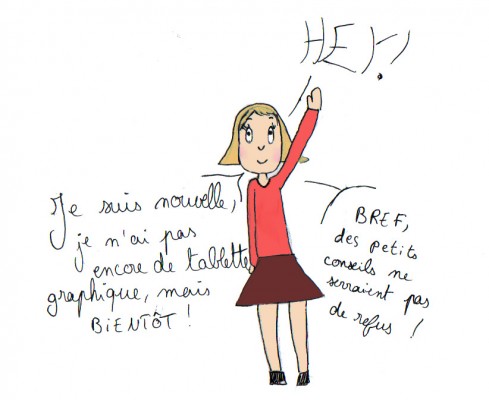 HEY!
Je suis nouvelle,
je n'ai pas
encore de tablette
graphique, mais
BIENTÔT !
BREF,
des petits
conseils ne
serraient pas
de refus !